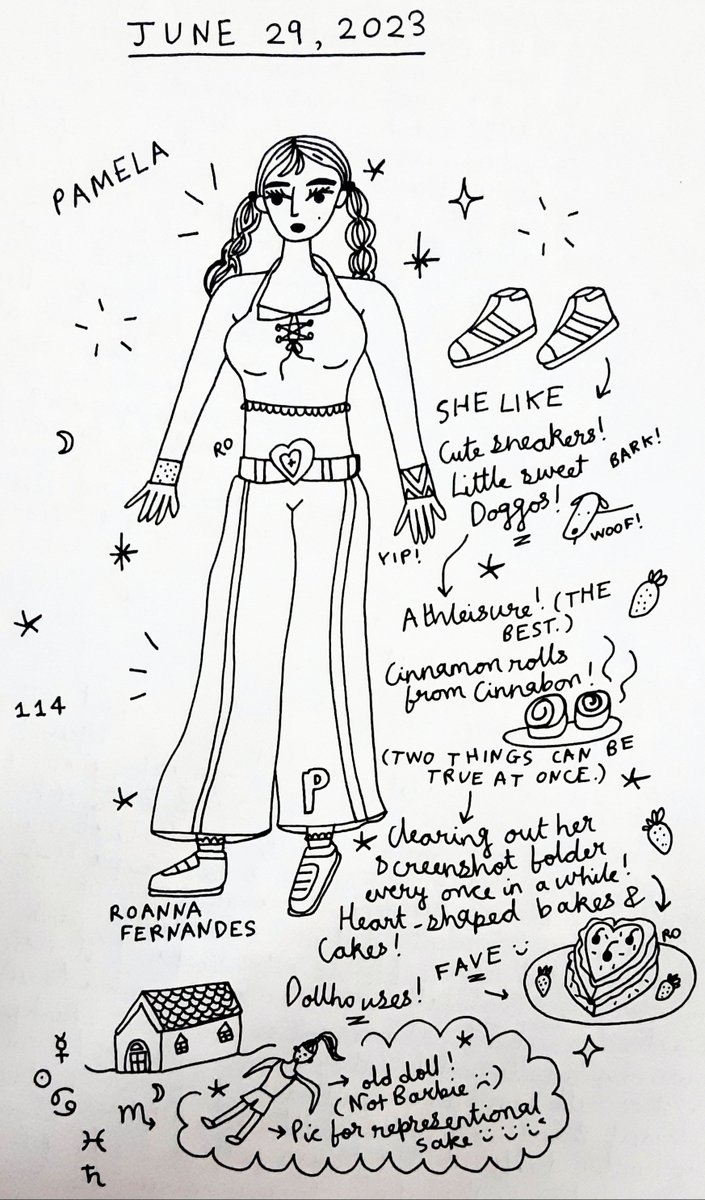 JUNE 29, 2023
PAMELA
SHE LIKE
Cute sneakers!
Little sweet
Doggos!
BARK!
WOOF!
YIP!
RO
Athleisure! (THE
BEST.)
Cinnamon rolls
from Cinnabon!
114
(TWO THINGS CAN BE
TRUE AT ONCE.)
P
Clearing out her
screenshot folder
every once in a while!
Heart-shaped bakes &
Cakes!
RO
FAVE
ROANNA
FERNANDES
Dollhouses!
old doll!
(Not Barbie :()
Pic for representional
sake